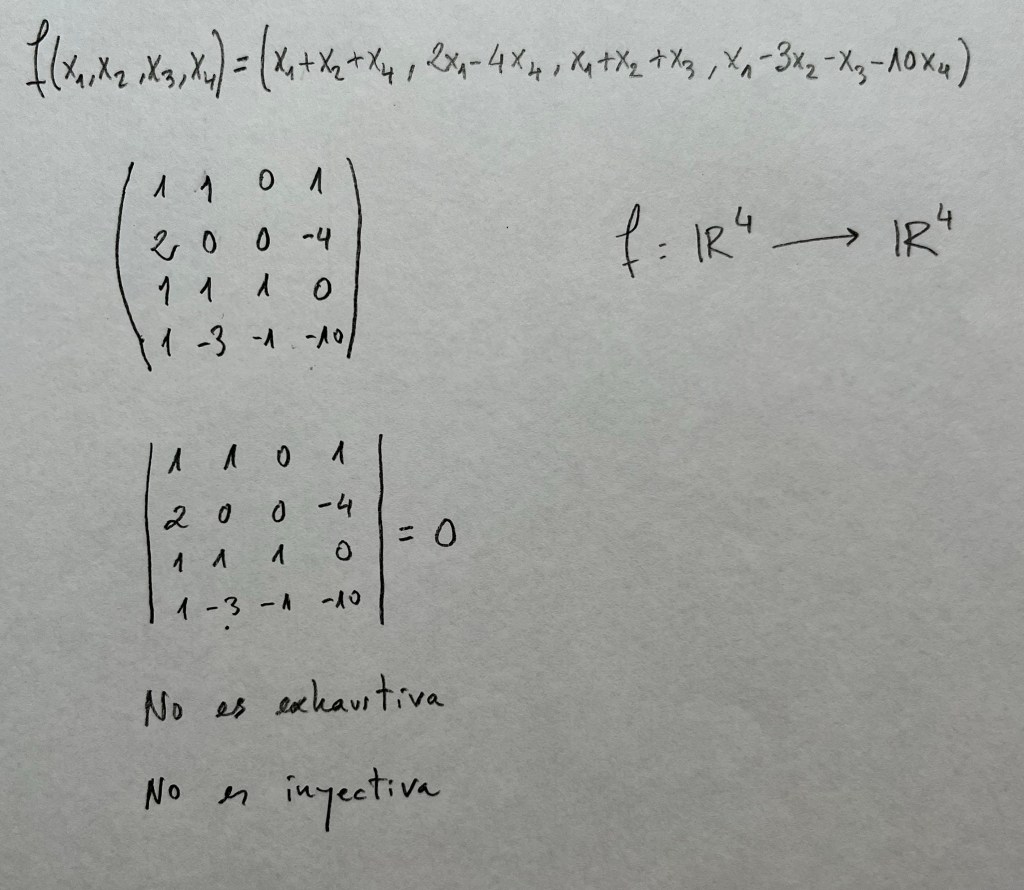 f(x₁,x₂,x₃,x₄)=(x₁+x₂+x₄, 2x₁-4x₄, x₁+x₂+x₃, x₁-3x₂-x₃-10x₄)
1 1 0 1
2 0 0 -4
1 1 1 0
1 -3 -1 -10
f: ℝ⁴ → ℝ⁴
1 1 0 1
2 0 0 -4
1 1 1 0
1 -3 -1 -10
= 0
No es exhaustiva
No es inyectiva